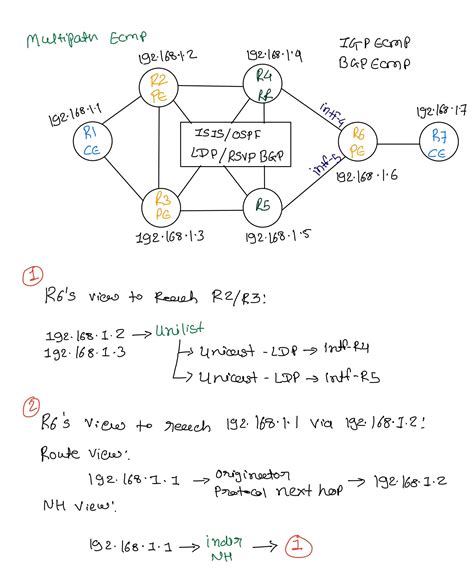 Multipath Ecmp
IGP Ecmp
BGP Ecmp
192.168.1.2
192.168.1.9
192.168.1.1
192.168.1.7
R2
PE
R4
RR
intf-4
R1
CE
ISIS/OSPF
LDP/RSVP BGP
R6
PE
R7
CE
intf-5
R3
PE
R5
192.168.1.6
192.168.1.3
192.168.1.5
1
R6's view to Reach R2/R3:
192.168.1.2 → Unilist
192.168.1.3
→ Unicast - LDP → intf-R4
→ Unicast - LDP → intf-R5
2
R6's view to reach 192.168.1.1 via 192.168.1.2:
Route view:
192.168.1.1 → Originator → 192.168.1.2
Protocol next hop
NH view:
192.168.1.1 → indr → 1
NH